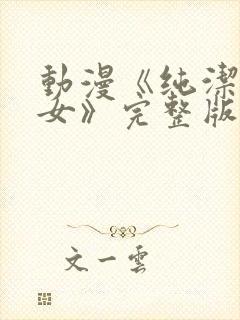 動漫《純潔
女》完整版
文一雲